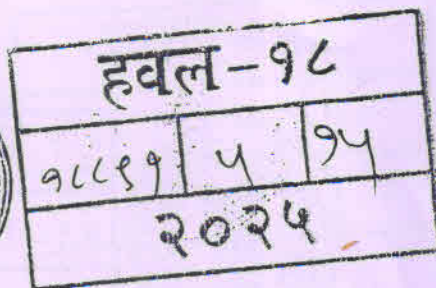 हवल-१८
१८८९१ ५ १५
२०२५